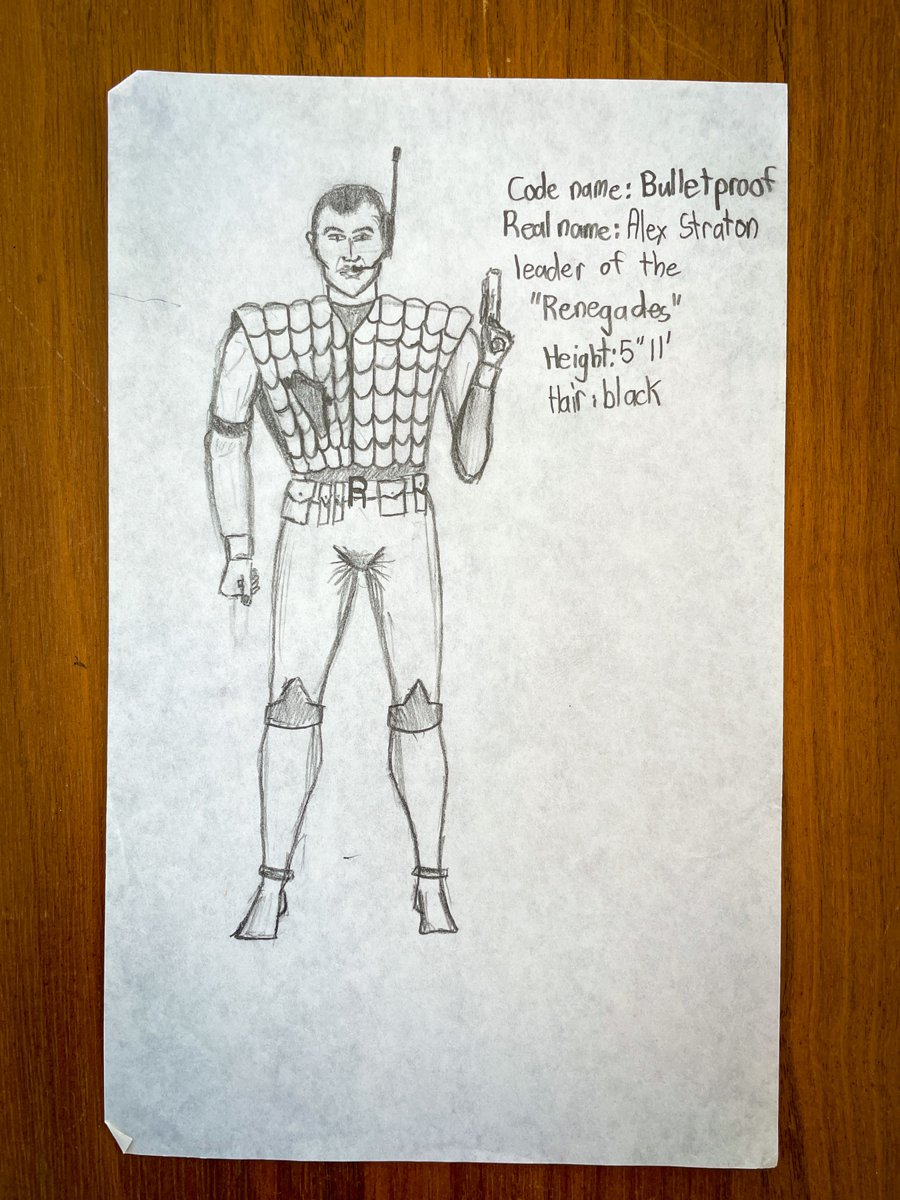 Code name: Bulletproof
Real name: Alex Straton
leader of the
"Renegades"
Height: 5"11'
Hair: black
R